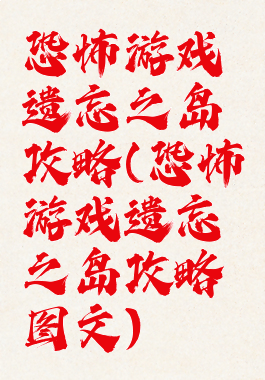 恐怖游戏
遗忘之岛
攻略(恐怖
游戏遗忘
之岛攻略
图文)